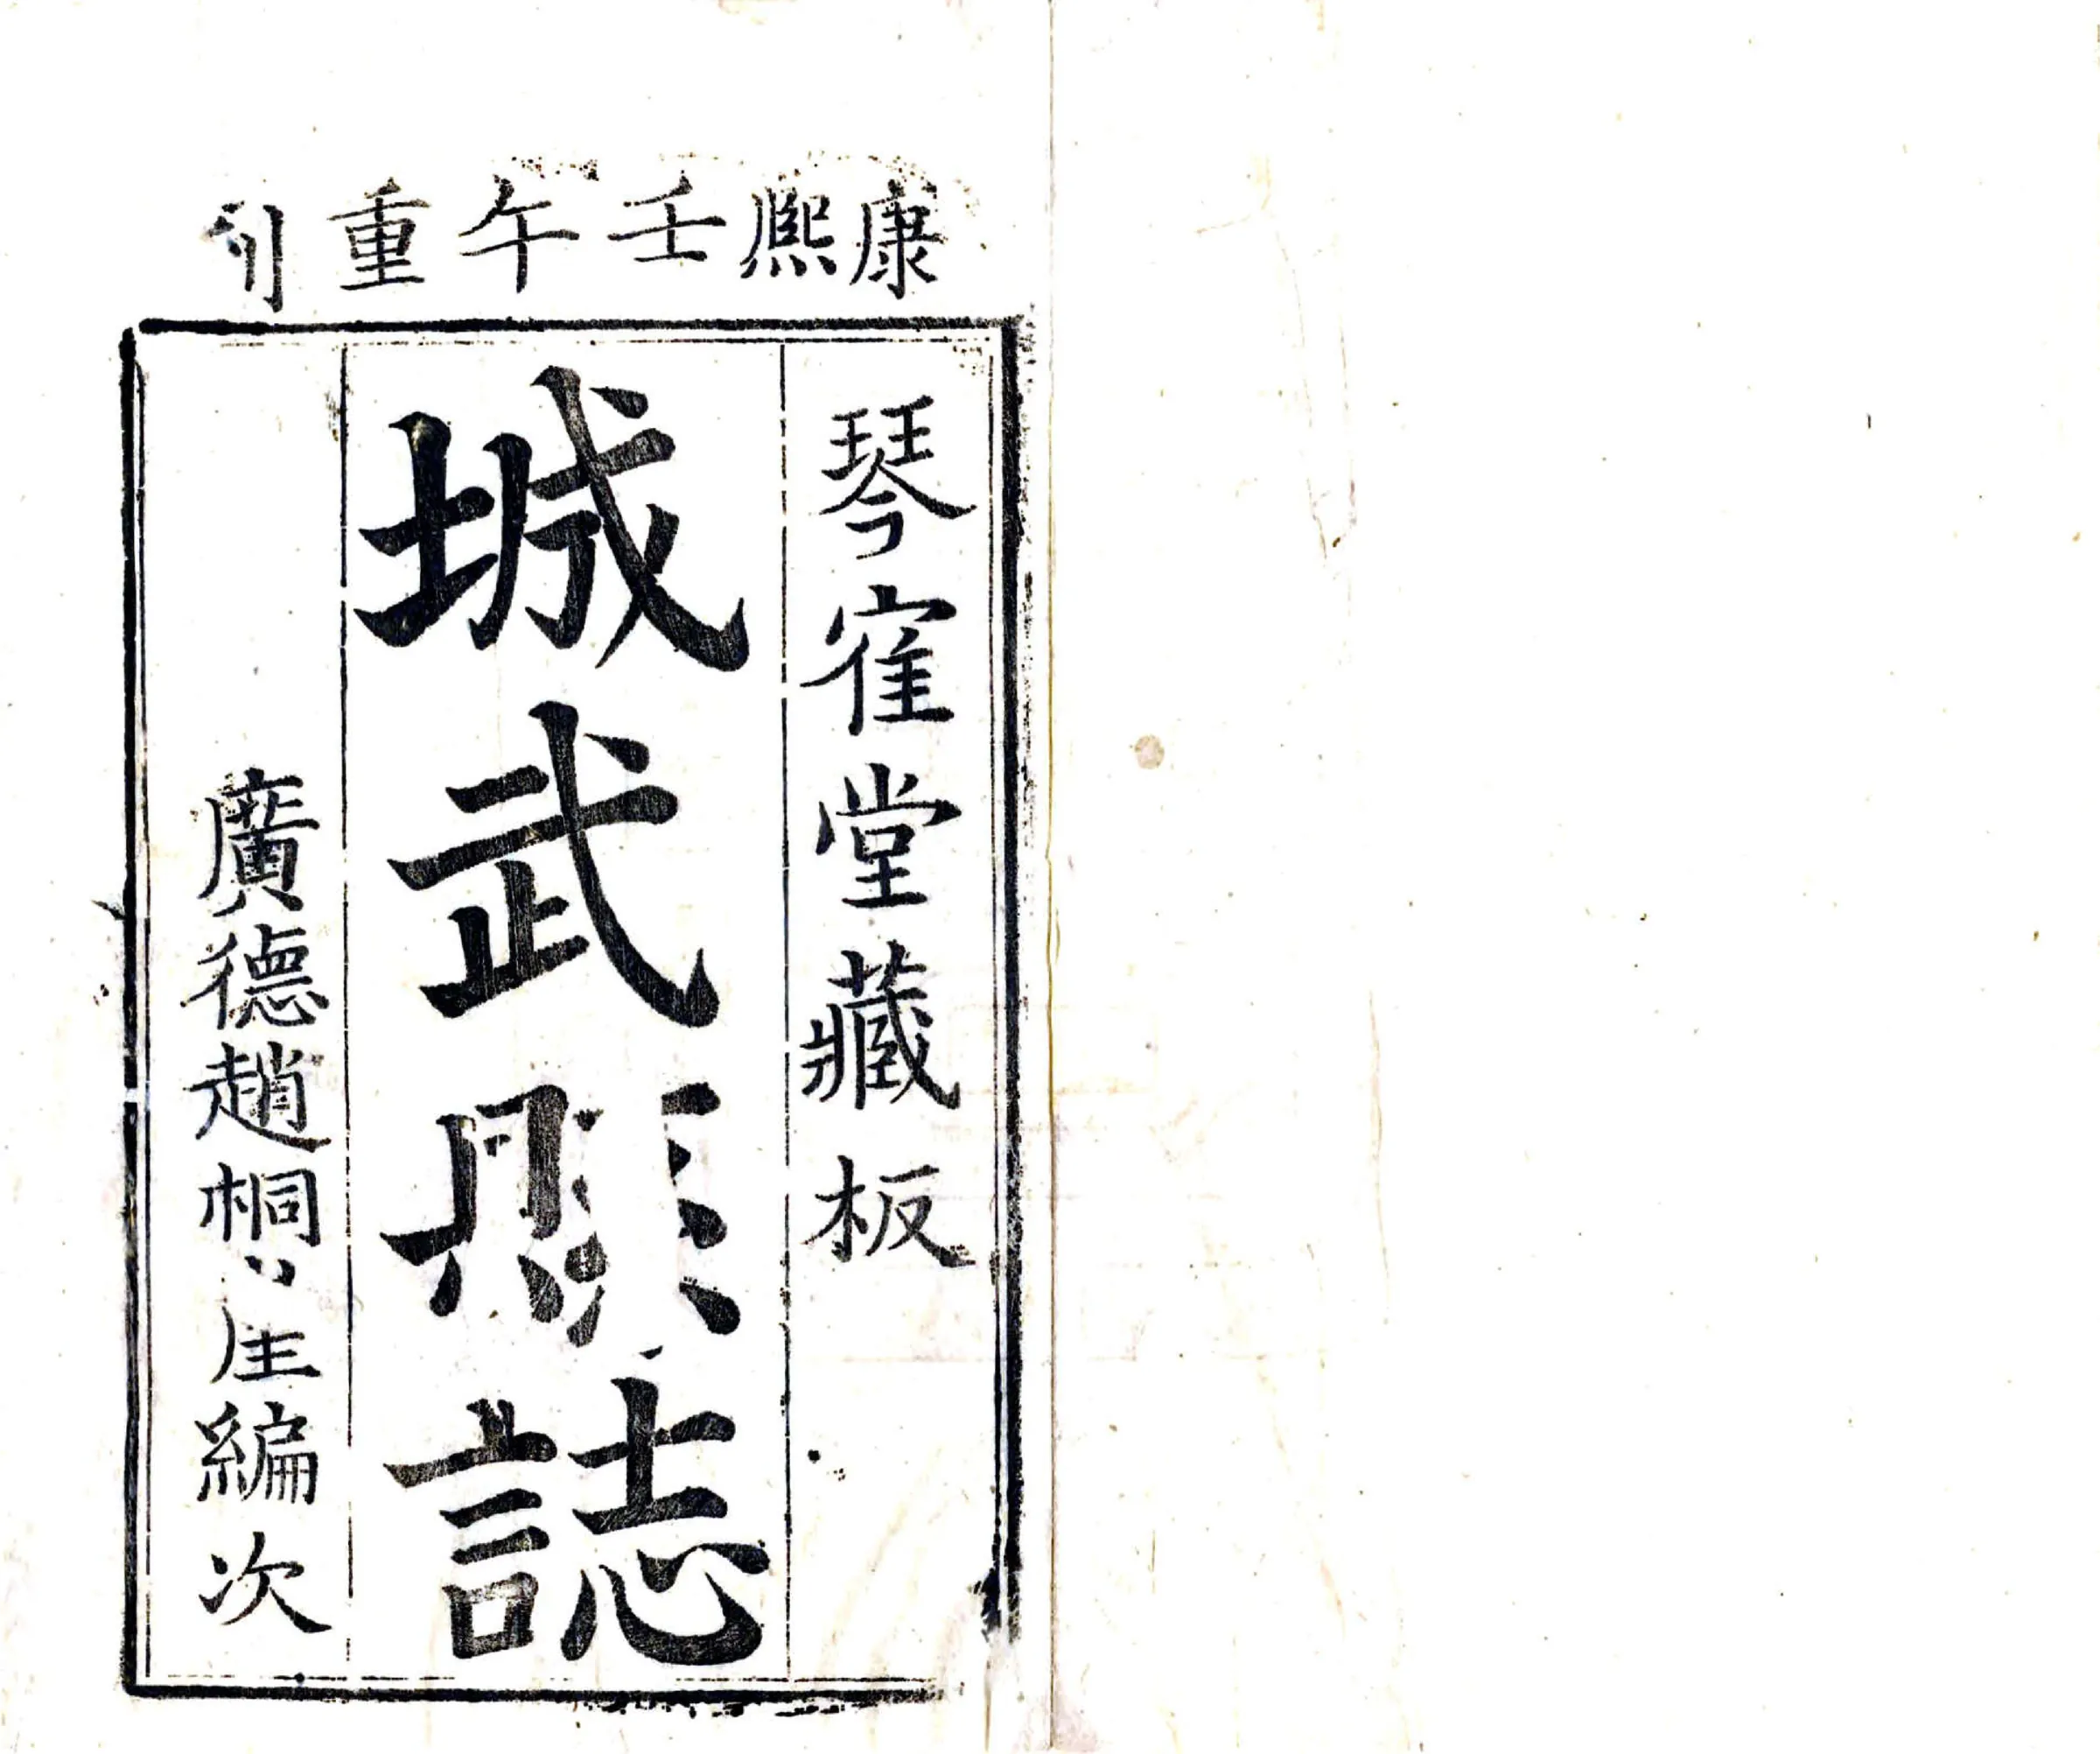 康熙壬午重刊
琴寉堂藏板
城武縣誌
廣德趙桐編次